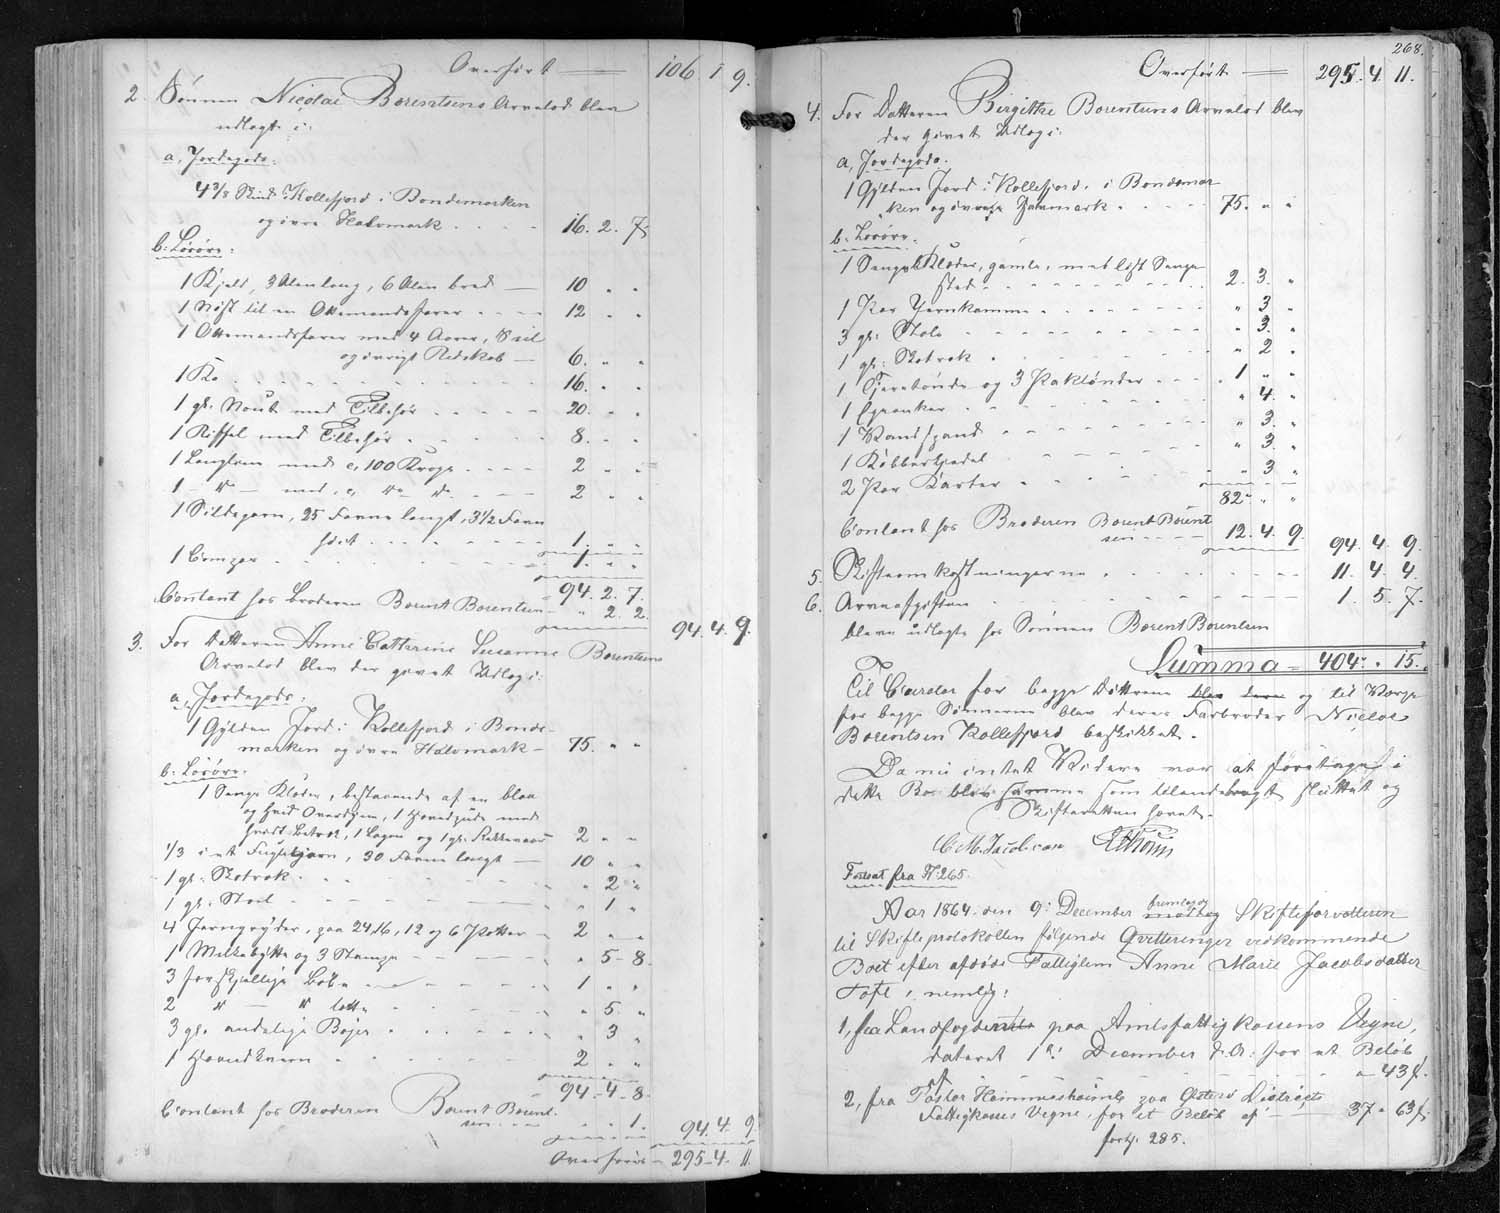 Overført — 106. 1 9.
2. Sønnen Nicolai Borentsens Arvelod blev
udlagt i:
a, Jordegods:
4 3/8 Skind i Kollefjord i Bondemarken
og øvre Halvmark - - - - 16. 2. 7.
b: Løsøre:
1 Kjeld, 3 Alen lang, 6 Alen bred — 10 " "
1 Nøst til en Ottemandsfarer - - - - 12 " "
1 Ottemandsfarer med 4 Aarer, 8
og øvrigt Redskab — 6. " "
1 Ko - - - - - - - - 16. " "
1 gl. Noub med Tilbehør - - - - 20. " "
1 Riffel med Tilbehør - - - - - 8. " "
1 Langline med c, 100 Kroge - - - - 2 " "
1 — do — med, c, do do - - - - 2 " "
1 Sildegarn, 25 Favne langt, 3 1/2 Favn
høit - - - - - - - 1. " "
1 - - - - - - - 1. " "
94. 2. 7.
Contant hos Broderen Borent Borentsen — " 2. 2. 94. 4. 9.
3. For Datteren Anne Catherine Susanne Borentsens
Arvelod blev der givet Udlæg i:
a, Jordegods:
1 Gylden Jord i Kollefjord i Bonde-
marken og øvre Halvmark — 75. " "
b: Løsøre:
1 Senge Klæder, bestaaende af en blaa
og hvid Overdyne, 1 Hovedpude med
hvidt Betræk, 1 Lagen og 1 gl. Rekkevoar 2 " "
1/3 i et Fuglebjerg, 30 Favne langt — 10 " "
1 gl. Skotrok - - - - - " 2 "
1 gl. Stoel - - - - - " 1 "
4 Jerngryder, paa 24, 16, 12 og 6 Potter — 2 " "
1 Melkebøtte og 3 Stampe - - - - " 5 - 8.
3 forskjellige - - - - 1 " "
2 do — do - - - - " 5. "
3 gl. - - - - - " 3 "
1 Haandkvern - - - - - 2 " "
94 - 4 - 8.
Contant hos Broderen Borent Borent-
sen - - - - " " 1. 94. 4. 9.
Overføres — 295 - 4. 11.
268.
Overført — 295. 4. 11.
4. For Datteren Birgithe Borentsens Arvelod blev
der givet Udlæg i:
a, Jordegods.
1 Gylden Jord i Kollefjord, i Bondemar-
ken og øvre Halvmark - - - - 75. " "
b: Løsøre:
1 Senge Klæder, gamle, med løst Senge-
sted - - - - - - 2. 3. "
1 Par Jernkamme - - - - - " 3 "
3 gl: Stole - - - - - " 3. "
1 gl: Skotrok - - - - - " 2 "
1 Tjæretønde og 3 Saktønder - - - - 1 " "
1 - - - - - " 4. "
1 Vandspand - - - - - " 3. "
1 Kobberkjedel - - - - - " 3. "
2 Par Karter - - - - - " 3 "
82 " " "
Contant hos Broderen Borent Borent-
sen - - - - 12. 4. 9. 94. 4. 9.
5. Skifteomkostningerne - - - - - 11. 4. 4.
6. Arveafgiften - - - - - 1. 5. 7.
bleve udlagte hos Sønnen Borent Borentsen
Summa = 404 " 15.
Til Curator for begge Døttrene og til Værge
for begge Sønnerne blev deres Farbroder Nicloe
Borentsen Kollefjord beskikket.
Da nu intet Videre var at foretages i
dette Bo blev samme som tilendebragt sluttet og
Skifteretten hævet.
C. M. Jacobsen
Fortsat fra P. 265.
Aar 1864 den 9: December fremlagde Skifteforvalteren
til Skifteprotokollen følgende Qvitteringer vedkommende
Boet efter afdøde Fattiglem Anne Marie Jacobsdatter
Toft, nemlig:
1, fra Landfogden paa Amtsfattigkassens Vegne,
dateret 1ste December d. A: for et Beløb
af - - - - - - - " - 43 f.
2, fra Pastor Hammershaimb paa Østerø Districts
Fattigkasses Vegne, for et Beløb af — 37 " 63 f.
forts. 285.